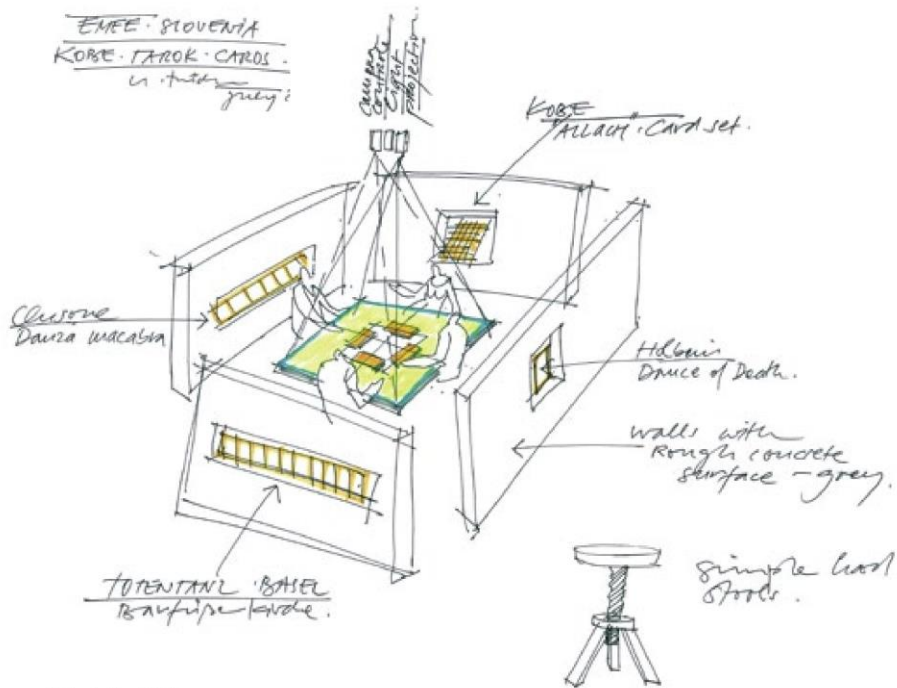 EMEE · SLOVENIA
KOBE · TAROK · CARDS ·
camera
controls
Light
projection
KOBE
"ALLACH" · Card set.
Clusone
Danza macabra
Holbein
Dance of Death.
walls with
Rough concrete
surface - grey.
TOTENTANZ · BASEL
simple hard
stools.